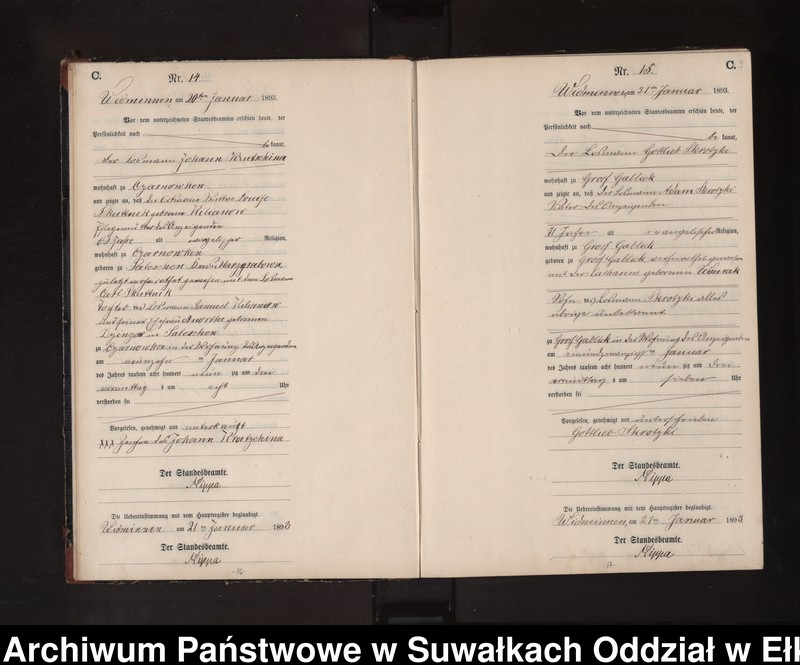 C.
Nr. 14
Widminnen, am 20ten Januar 1893.
Vor dem unterzeichneten Standesbeamten erschien heute, der
Persönlichkeit nach
be kannt,
der Losmann Johann
wohnhaft zu Czarnowken
und zeigte an, daß die
Skuttnick geborene Kilianow
Pflegemutter des Anzeigenden
63 Jahre alt evangelischer Religion,
wohnhaft zu Czarnowken
geboren zu Saleschen
zuletzt verheirathet gewesen mit dem Losmann
Carl Skuttnick
Tochter des Losmann Samuel Kilianow
und seiner Ehefrau geborenen
in Saleschen
zu Czarnowken in der Wohnung des Anzeigenden
am neunzehnten Januar
des Jahres tausend acht hundert neunzig und drei
vormittags um acht Uhr
verstorben sei
Vorgelesen, genehmigt und unterkreuzt
XXX Zeichen des Johann
Der Standesbeamte.
Nippa
Die Uebereinstimmung mit dem Hauptregister beglaubigt.
Widminnen am 21ten Januar 1893
Der Standesbeamte.
Nippa
C.
Nr. 15.
Widminnen, am 21ten Januar 1893.
Vor dem unterzeichneten Standesbeamten erschien heute, der
Persönlichkeit nach
be kannt,
der Losmann Gottlieb Skrotzki
wohnhaft zu Groß Gablick
und zeigte an, daß der Losmann Adam Skrotzki
Vater des Anzeigenden
71 Jahre alt evangelischer Religion,
wohnhaft zu Groß Gablick
geboren zu Groß Gablick, verheirathet gewesen
mit der Catharine geborenen
Sohn des Losmann Skrotzki alles
übrige unbekannt
zu Groß Gablick in der Wohnung des Anzeigenden
am einundzwanzigsten Januar
des Jahres tausend acht hundert neunzig und drei
vormittags um sieben Uhr
verstorben sei
Vorgelesen, genehmigt und unterschrieben
Gottlieb Skrotzki
Der Standesbeamte.
Nippa
Die Uebereinstimmung mit dem Hauptregister beglaubigt.
Widminnen, am 21ten Januar 1893
Der Standesbeamte.
Nippa
Archiwum Państwowe w Suwałkach Oddział w Eł